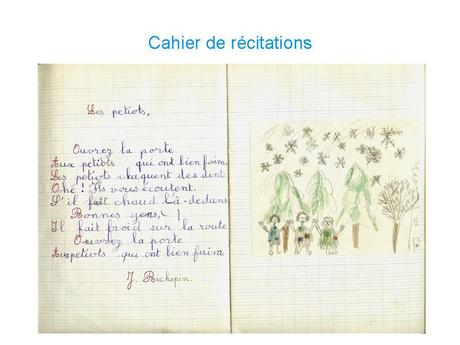 Cahier de récitations
Les petiots.
Ouvrez la porte
Aux petiots qui ont bien faim.
Les petiots claquent des dents
Ohé ! Ils vous écoutent.
S'il fait chaud là-dedans
Bonnes gens,
Il fait froid sur la route
Ouvrez la porte
Aux petiots qui ont bien faim
J. Richepin.